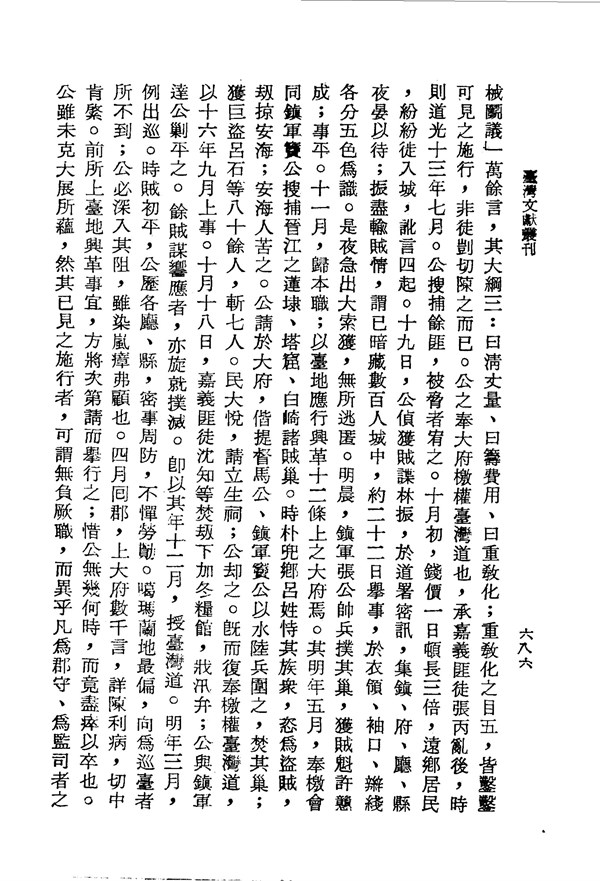 臺灣文獻叢刊
六八六
械鬭議」萬餘言,其大綱三:曰淸丈量、曰籌費用、曰重敎化;重敎化之目五,皆鑿鑿
可見之施行,非徒剴切陳之而已。公之奉大府檄權臺灣道也,承嘉義匪徒張丙亂後,時
則道光十三年七月。公搜捕餘匪,被脅者宥之。十月初,錢價一日頓長三倍,遠鄉居民
,紛紛徒入城,訛言四起。十九日,公偵獲賊諜林振,於道署密訊,集鎭、府、廳、縣
夜晏以待;振盡輸賊情,謂已暗藏數百人城中,約二十二日舉事,於衣領、袖口、辮綫
各分五色爲識。是夜急出大索獲,無所逃匿。明晨,鎭軍張公帥兵撲其巢,獲賊魁許戇
成;事平。十一月,歸本職;以臺地應行興革十二條上之大府焉。其明年五月,奉檄會
同鎭軍竇公搜捕晉江之蓮埭、塔窟、白崎諸賊巢。時朴兜鄉呂姓恃其族衆,恣爲盜賊,
刼掠安海;安海人苦之。公請於大府,偕提督馬公、鎭軍竇公以水陸兵圍之,焚其巢;
獲巨盜呂石等八十餘人,斬七人。民大悅,請立生祠;公却之。旣而復奉檄權臺灣道,
以十六年九月上事。十月十八日,嘉義匪徒沈知等焚刼下加冬糧館,戕汛弁;公與鎭軍
達公剿平之。餘賊謀響應者,亦旋就撲滅。卽以其年十二月,授臺灣道。明年三月,
例出巡。時賊初平,公歷各廳、縣,密事周防,不憚勞勩。噶瑪蘭地最偏,向爲巡臺者
所不到;公必深入其阻,雖染嵐瘴弗顧也。四月囘郡,上大府數千言,詳陳利病,切中
肯綮。前所上臺地興革事宜,方將次第請而舉行之;惜公無幾何時,而竟盡瘁以卒也。
公雖未克大展所蘊,然其已見之施行者,可謂無負厥職,而異乎凡爲郡守、爲監司者之